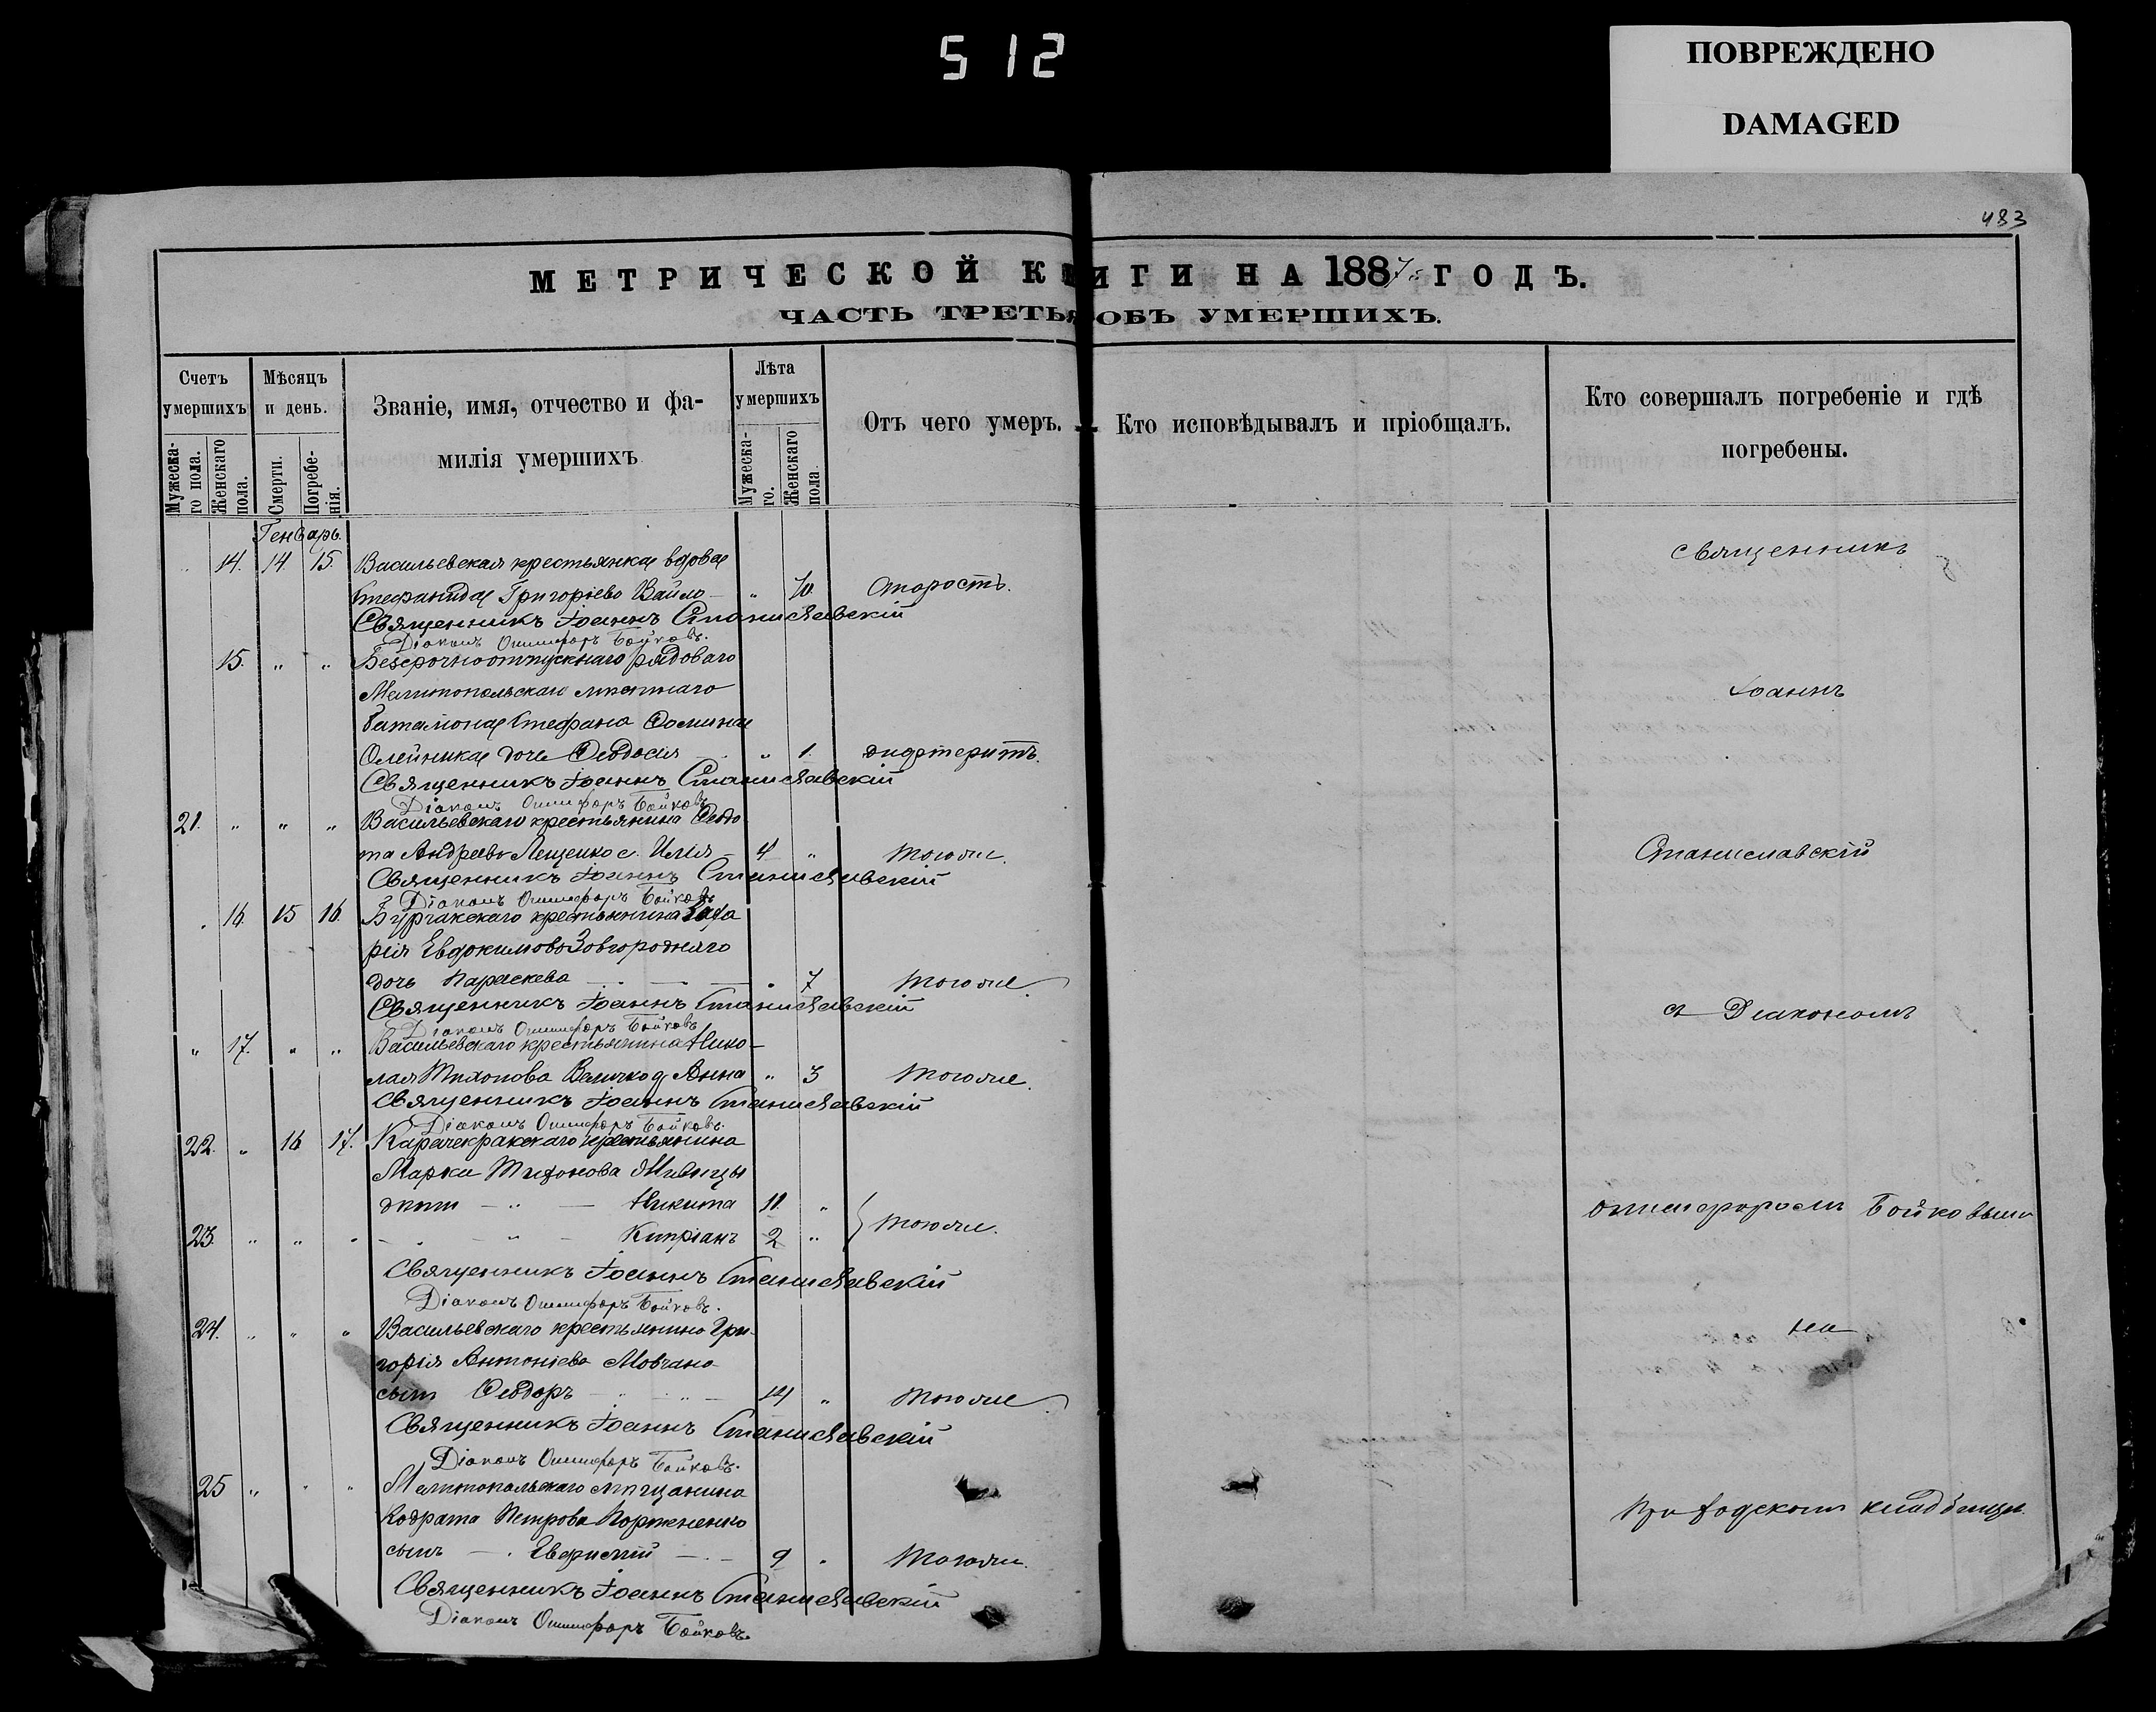 512
ПОВРЕЖДЕНО
DAMAGED
483
МЕТРИЧЕСКОЙ КНИГИ НА 1887 ГОДЪ.
ЧАСТЬ ТРЕТЬЯ ОБЪ УМЕРШИХЪ.
Счетъ умершихъ
Мужеска-го пола.
Женскаго пола.
Мѣсяцъ и день.
Смерти.
Погребе-нія.
Званіе, имя, отчество и фа-
милія умершихъ
Лѣта умершихъ
Мужеска-го.
Женскаго пола
Отъ чего умеръ.
Кто исповѣдывалъ и пріобщалъ.
Кто совершалъ погребеніе и гдѣ
погребены.
Генварь.
14. 14. 15. Васильевская крестьянка вдова
Стефанида Григоріева Вайло „ 70. Старость.
Священникъ Іоаннъ Станиславскій
Діаконъ Онисифоръ Бойковъ.
15. „ „ Безсрочноотпускнаго рядоваго
Мелитопольскаго мѣстнаго
баталіона Стефана Фомина
Олейника дочь Феодосія „ 1. дифтеритъ.
Священникъ Іоаннъ Станиславскій
Діаконъ Онисифоръ Бойковъ
21. „ „ „ Васильевскаго крестьянина Федо
та Андреева Лещенко с. Илія 4 „ тогоже.
Священникъ Іоаннъ Станиславскій
Діаконъ Онисифоръ Бойковъ
16. 15 16. Бурчакскаго крестьянина Заха
рія Евдокимова Завгородняго
дочь Параскева „ 7 тогоже.
Священникъ Іоаннъ Станиславскій
Діаконъ Онисифоръ Бойковъ
„ 17. „ „ Васильевскаго крестьянина Нико-
лая Тихонова Величко д. Анна „ 3 тогоже.
Священникъ Іоаннъ Станиславскій
Діаконъ Онисифоръ Бойковъ.
22. „ 16 17. Карачекракскаго крестьянина
Марка Тихонова
дѣти — „ — Никита 11. „
тогоже.
23. „ „ „ — „ — Кипріанъ 2 „
Священникъ Іоаннъ Станиславскій
Діаконъ Онисифоръ Бойковъ.
24. „ „ „ Васильевскаго крестьянина Гри-
горія Антоніева Мовчана
сынъ Феодоръ 14 „ тогоже.
Священникъ Іоаннъ Станиславскій
Діаконъ Онисифоръ Бойковъ.
25 „ „ „ Мелитопольскаго мѣщанина
Кодрата Петрова
сынъ — Евфимій 9 „ тогоже.
Священникъ Іоаннъ Станиславскій
Діаконъ Онисифоръ Бойковъ.
священникъ
Іоаннъ
Станиславскій
съ Діакономъ
Онисифоромъ Бойковымъ
на
приходскомъ кладбищѣ.